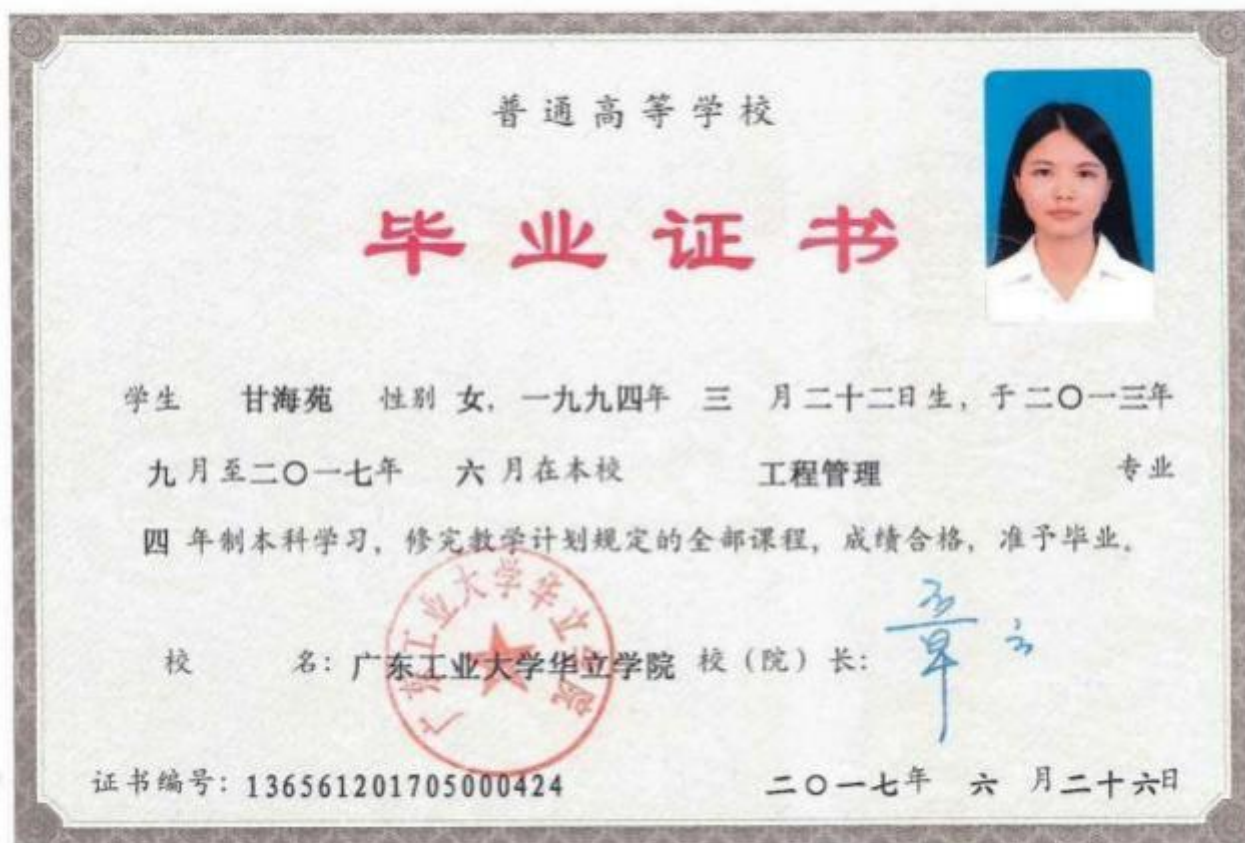 普通高等学校
毕业证书
学生 甘海苑 性别 女，一九九四年 三 月二十二日生，于二〇一三年
九月至二〇一七年 六月在本校 工程管理 专业
四 年制本科学习，修完教学计划规定的全部课程，成绩合格，准予毕业。
广东工业大学华立学院
校 名：广东工业大学华立学院 校（院）长：
证书编号：136561201705000424 二〇一七年 六 月二十六日